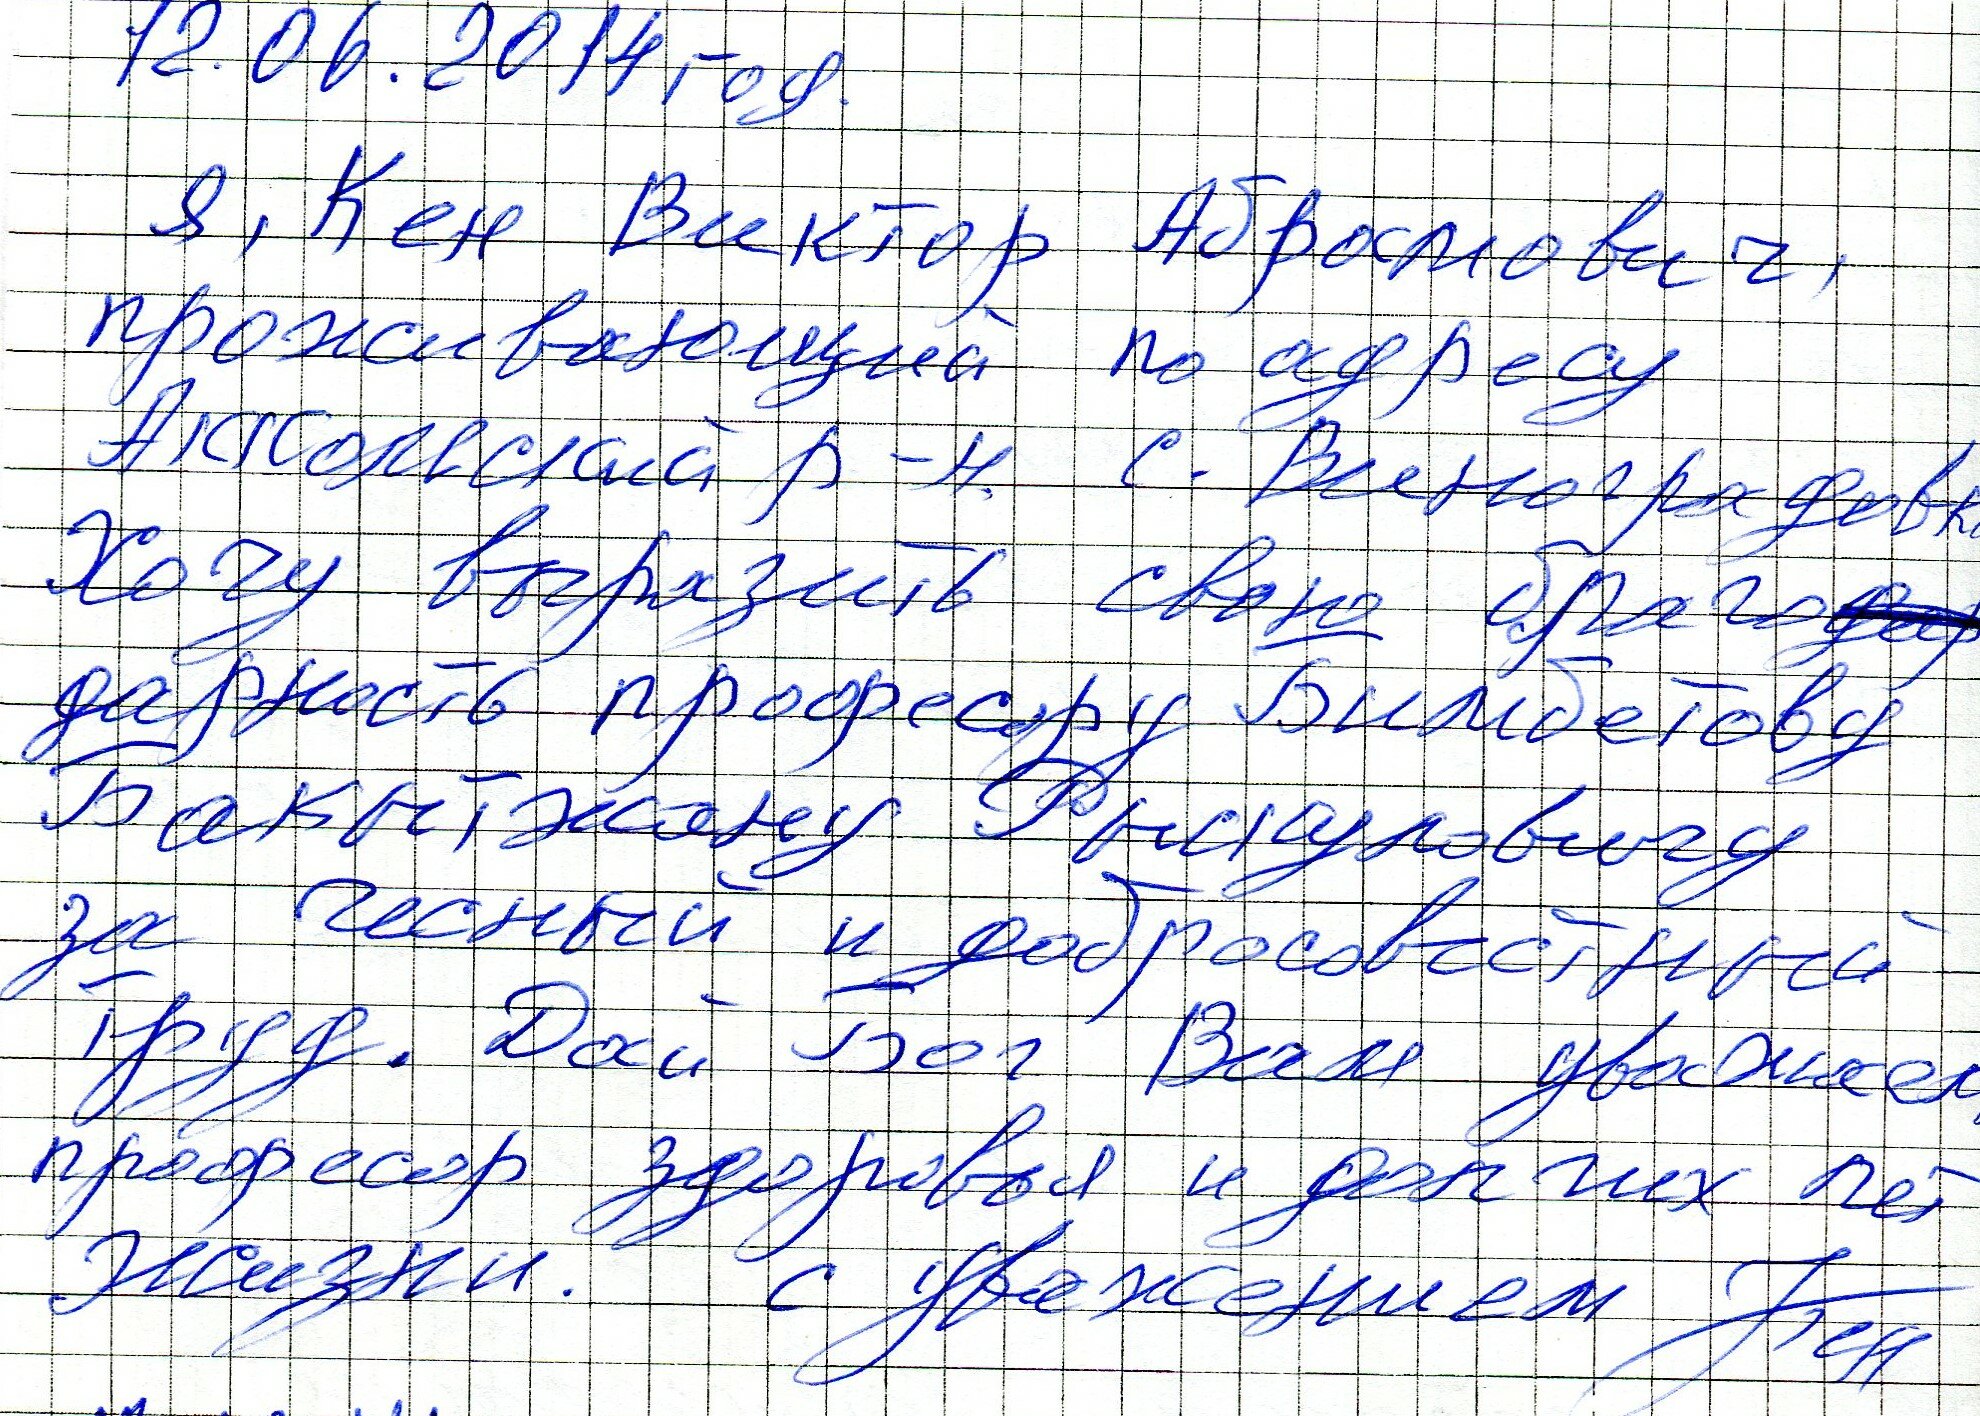 12.06.2014 год.
Я, Кен Виктор Абрамович,
проживающий по адресу
Аккольский р-н. с. Виноградовка
Хочу выразить свою благо
дарность професору Бимбетову
Бакытжану Рыскуловичу
за чесный и добросовестный
труд. Дай Бог Вам уважаем
професор здоровья и долгих лет
жизни. с уважением Кен